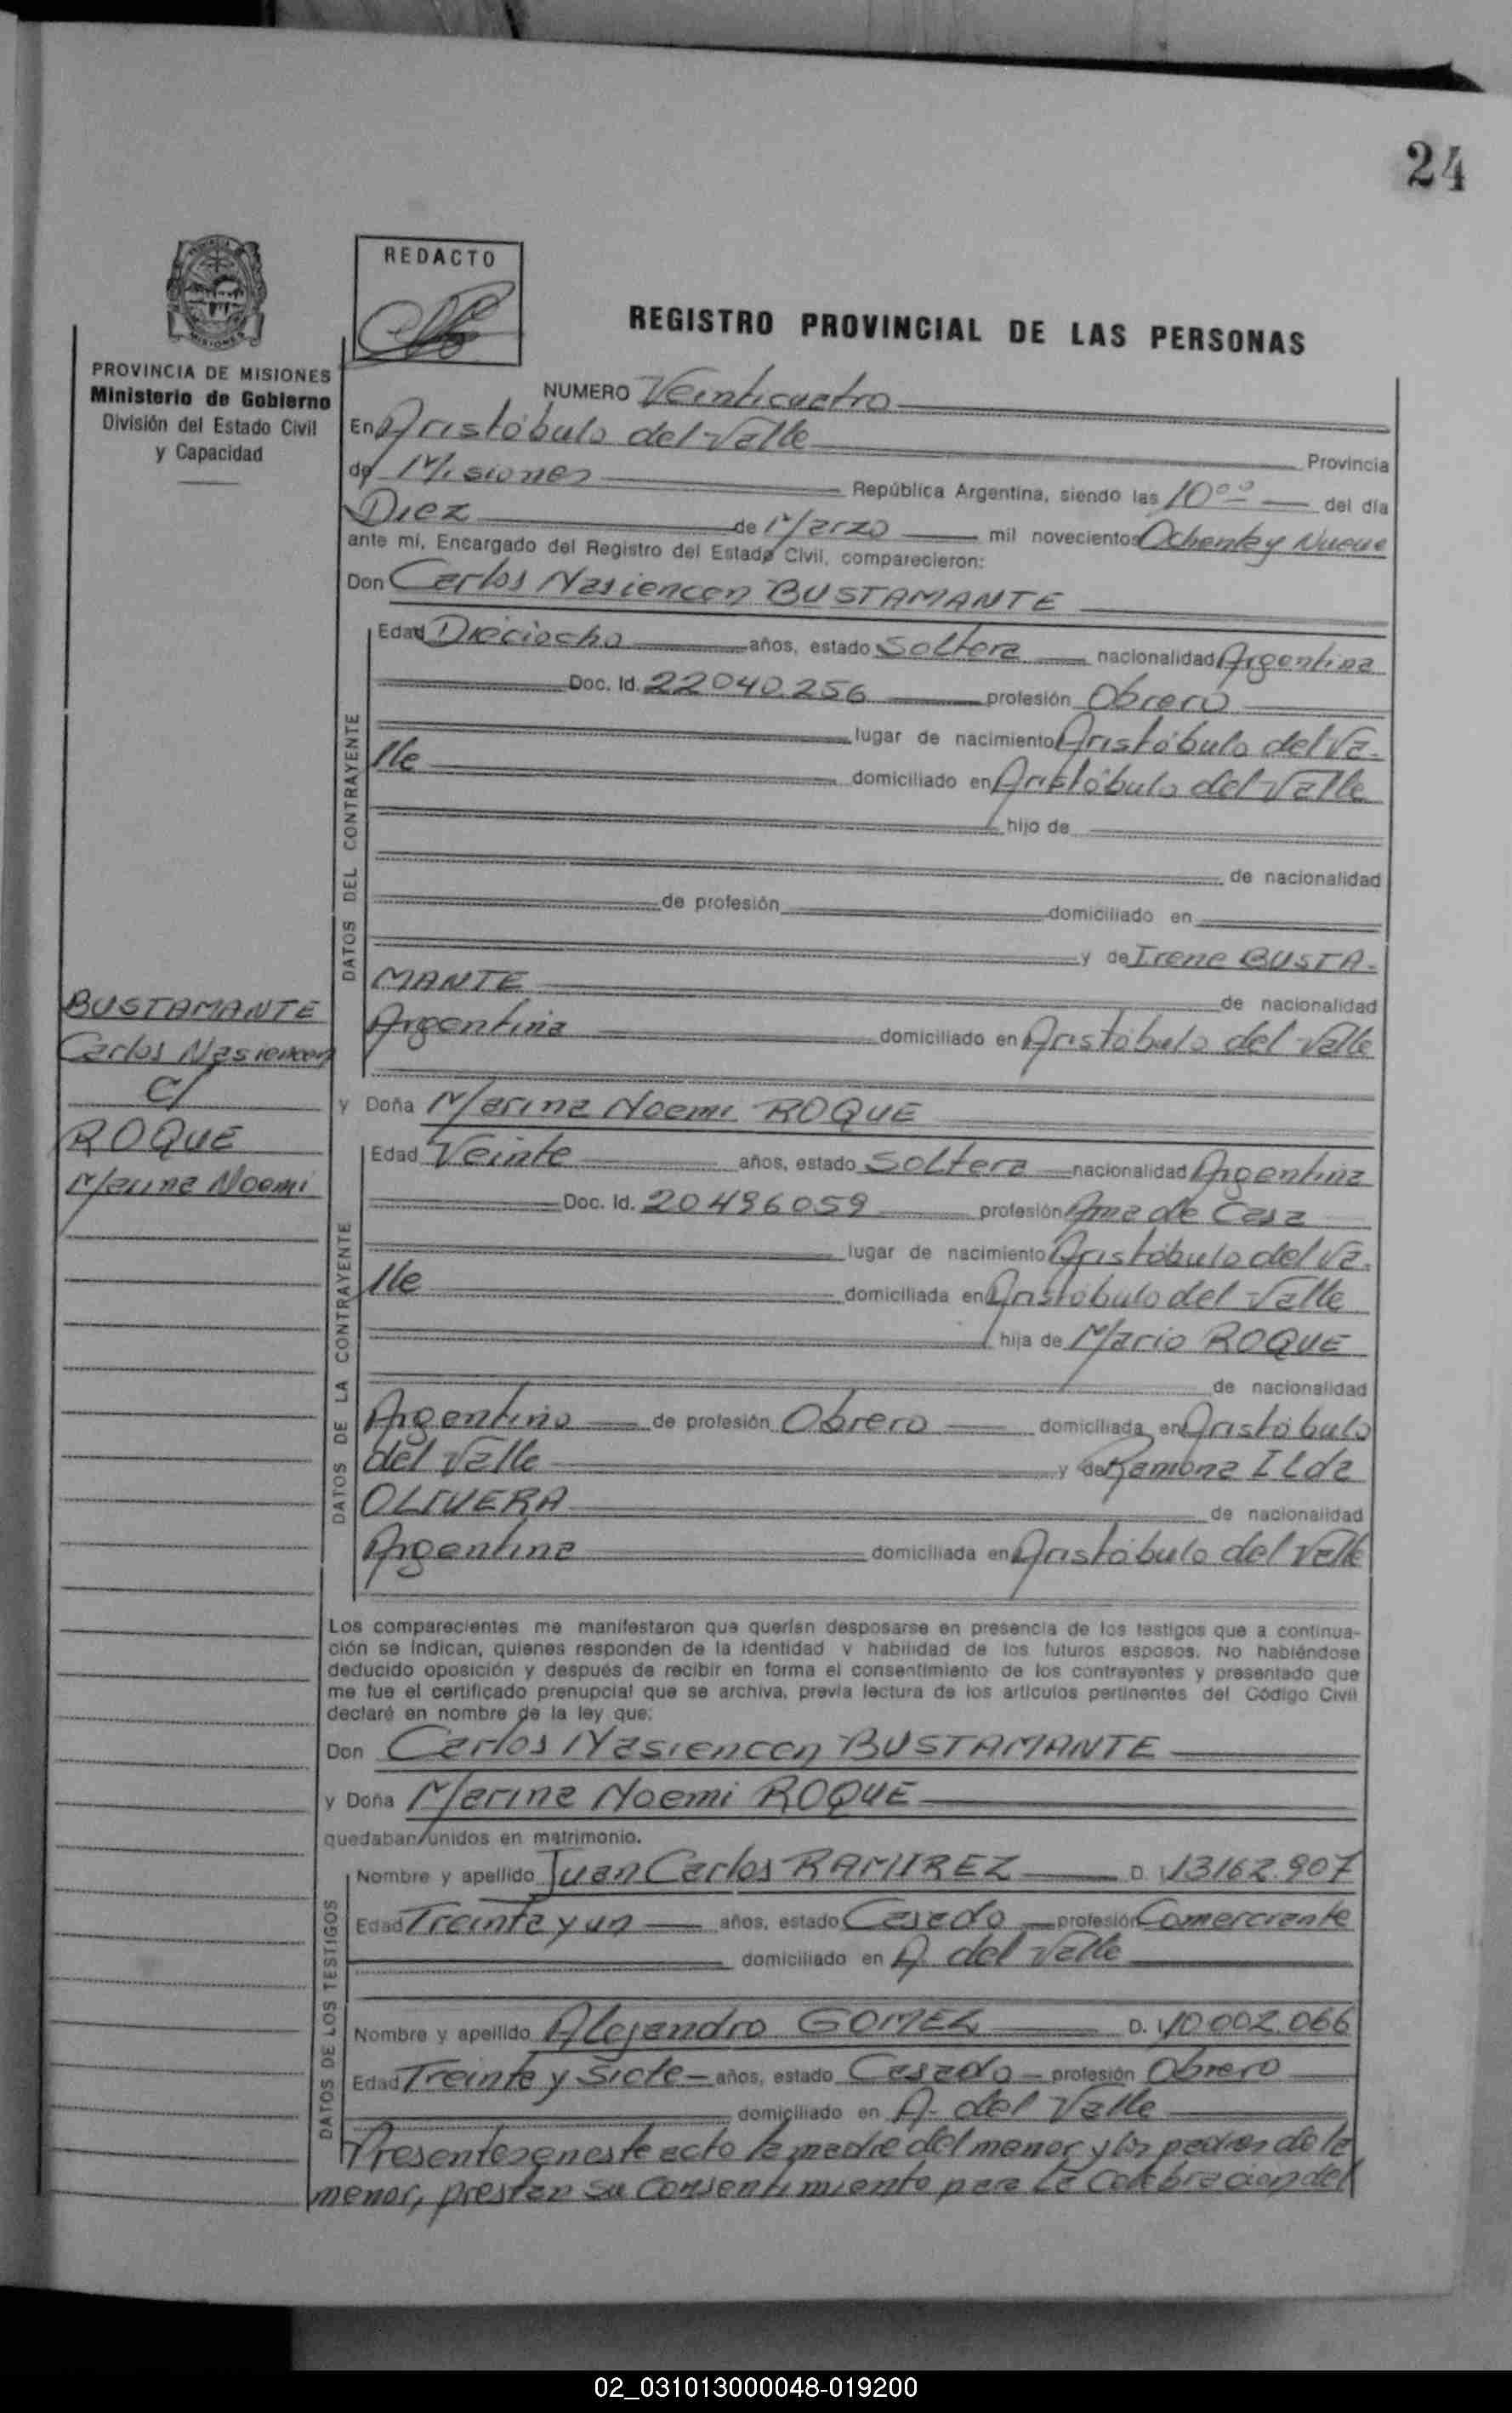 24
REDACTO
REGISTRO PROVINCIAL DE LAS PERSONAS
MISIONES
PROVINCIA DE MISIONES
Ministerio de Gobierno
División del Estado Civil
y Capacidad
NUMERO Veinticuatro
En Aristóbulo del Valle Provincia
de Misiones República Argentina, siendo las 10ºº del día
Diez de Marzo mil novecientos Ochenta y Nueve
ante mí, Encargado del Registro del Estado Civil, comparecieron:
Don Carlos Nasiencen BUSTAMANTE
DATOS DEL CONTRAYENTE
Edad Dieciocho años, estado Soltera nacionalidad Argentina
Doc. Id. 22040.256 profesión Obrero
lugar de nacimiento Aristóbulo del Va-
lle domiciliado en Aristóbulo del Valle
hijo de
de nacionalidad
de profesión domiciliado en
y de Irene BUSTA-
MANTE de nacionalidad
Argentina domiciliado en Aristóbulo del Valle
BUSTAMANTE
Carlos Nasiencen
c/
ROQUE
Marina Noemi
y Doña Marina Noemi ROQUE
DATOS DE LA CONTRAYENTE
Edad Veinte años, estado Soltera nacionalidad Argentina
Doc. Id. 20496059 profesión Ama de Casa
lugar de nacimiento Aristóbulo del Va-
lle domiciliada en Aristóbulo del Valle
hija de Mario ROQUE
de nacionalidad
Argentino de profesión Obrero domiciliada en Aristóbulo
del Valle y de Ramona ILda
OLIVERA de nacionalidad
Argentina domiciliada en Aristóbulo del Valle
Los comparecientes me manifestaron que querían desposarse en presencia de los testigos que a continua-
ción se indican, quienes responden de la identidad y habilidad de los futuros esposos. No habiéndose
deducido oposición y después de recibir en forma el consentimiento de los contrayentes y presentado que
me fue el certificado prenupcial que se archiva, previa lectura de los artículos pertinentes del Código Civil
declaré en nombre de la ley que:
Don Carlos Nasiencen BUSTAMANTE
y Doña Marina Noemi ROQUE
quedaban unidos en matrimonio.
DATOS DE LOS TESTIGOS
Nombre y apellido Juan Carlos RAMIREZ D. I. 13162.907
Edad Treinta y un años, estado Casado profesión Comerciante
domiciliado en A. del Valle
Nombre y apellido Alejandro GOMEZ D. I. 10.002.066
Edad Treinta y Siete años, estado Casado profesión Obrero
domiciliado en A. del Valle
Presentes en este acto la madre del menor y los padres de la
menor, prestan su consentimiento para la celebracion del
02_031013000048-019200